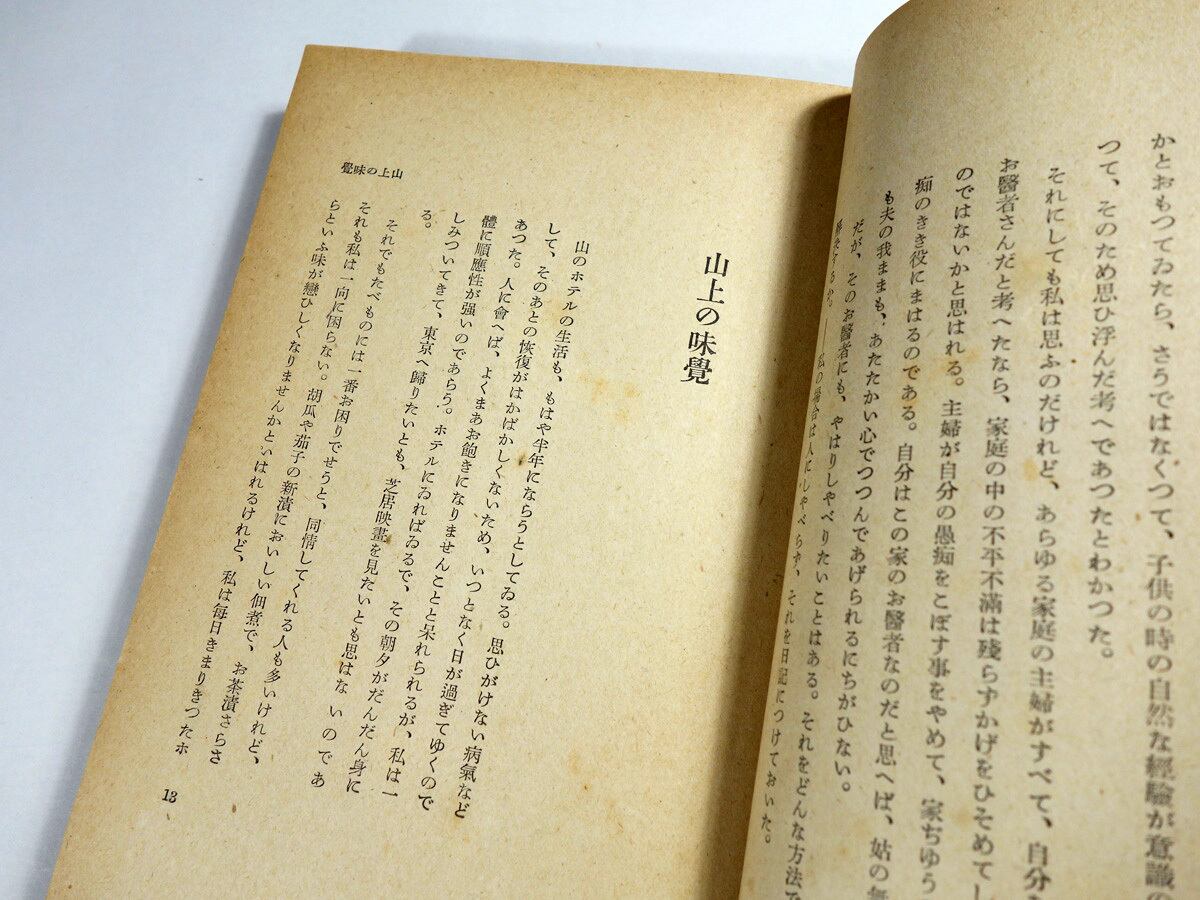 かとおもつてゐたら、さうではなくつて、子供の時の自然な經驗が意識の
つて、そのため思ひ浮んだ考へであつたとわかつた。
それにしても私は思ふのだけれど、あらゆる家庭の主婦がすべて、自分
お醫者さんだと考へたなら、家庭の中の不平不滿は殘らずかげをひそめてし
のではないかと思はれる。主婦が自分の愚痴をこぼす事をやめて、家ぢゆう
痴のきき役にまはるのである。自分はこの家のお醫者なのだと思へば、姑の無
も夫の我ままも、あたたかい心でつつんであげられるにちがひない。
だが、そのお醫者にも、やはりしやべりたいことはある。それをどんな方法で
するか。――私の場合は人にしやべらず、それを日記につけておいた。
覺味の上山
山上の味覺
山のホテルの生活も、もはや半年にならうとしてゐる。思ひがけない病氣など
して、そのあとの恢復がはかばかしくないため、いつとなく日が過ぎてゆくので
あつた。人に會へば、よくまあお飽きになりませんことと呆れられるが、私は一
體に順應性が强いのであらう。ホテルにゐればゐるで、その朝夕がだんだん身に
しみついてきて、東京へ歸りたいとも、芝居映畫を見たいとも思はないのであ
る。
それでもたべものには一番お困りでせうと、同情してくれる人も多いけれど、
それも私は一向に困らない。胡瓜や茄子の新漬においしい佃煮で、お茶漬さらさ
らといふ味が戀ひしくなりませんかといはれるけれど、私は每日きまりきつたホ
13